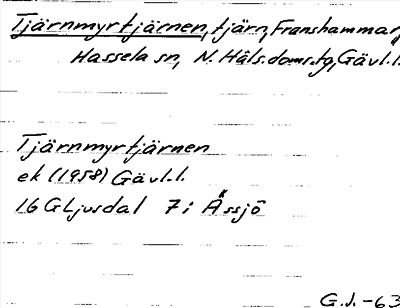 Tjärnmyrtjärnen, tjärn, Franshammar,
Hassela sn, N. Häls. doms.tg, Gävl.l.
Tjärnmyrtjärnen
ek (1958) Gävl.l.
16 G Ljusdal 7 i Åssjö
G.J. -63